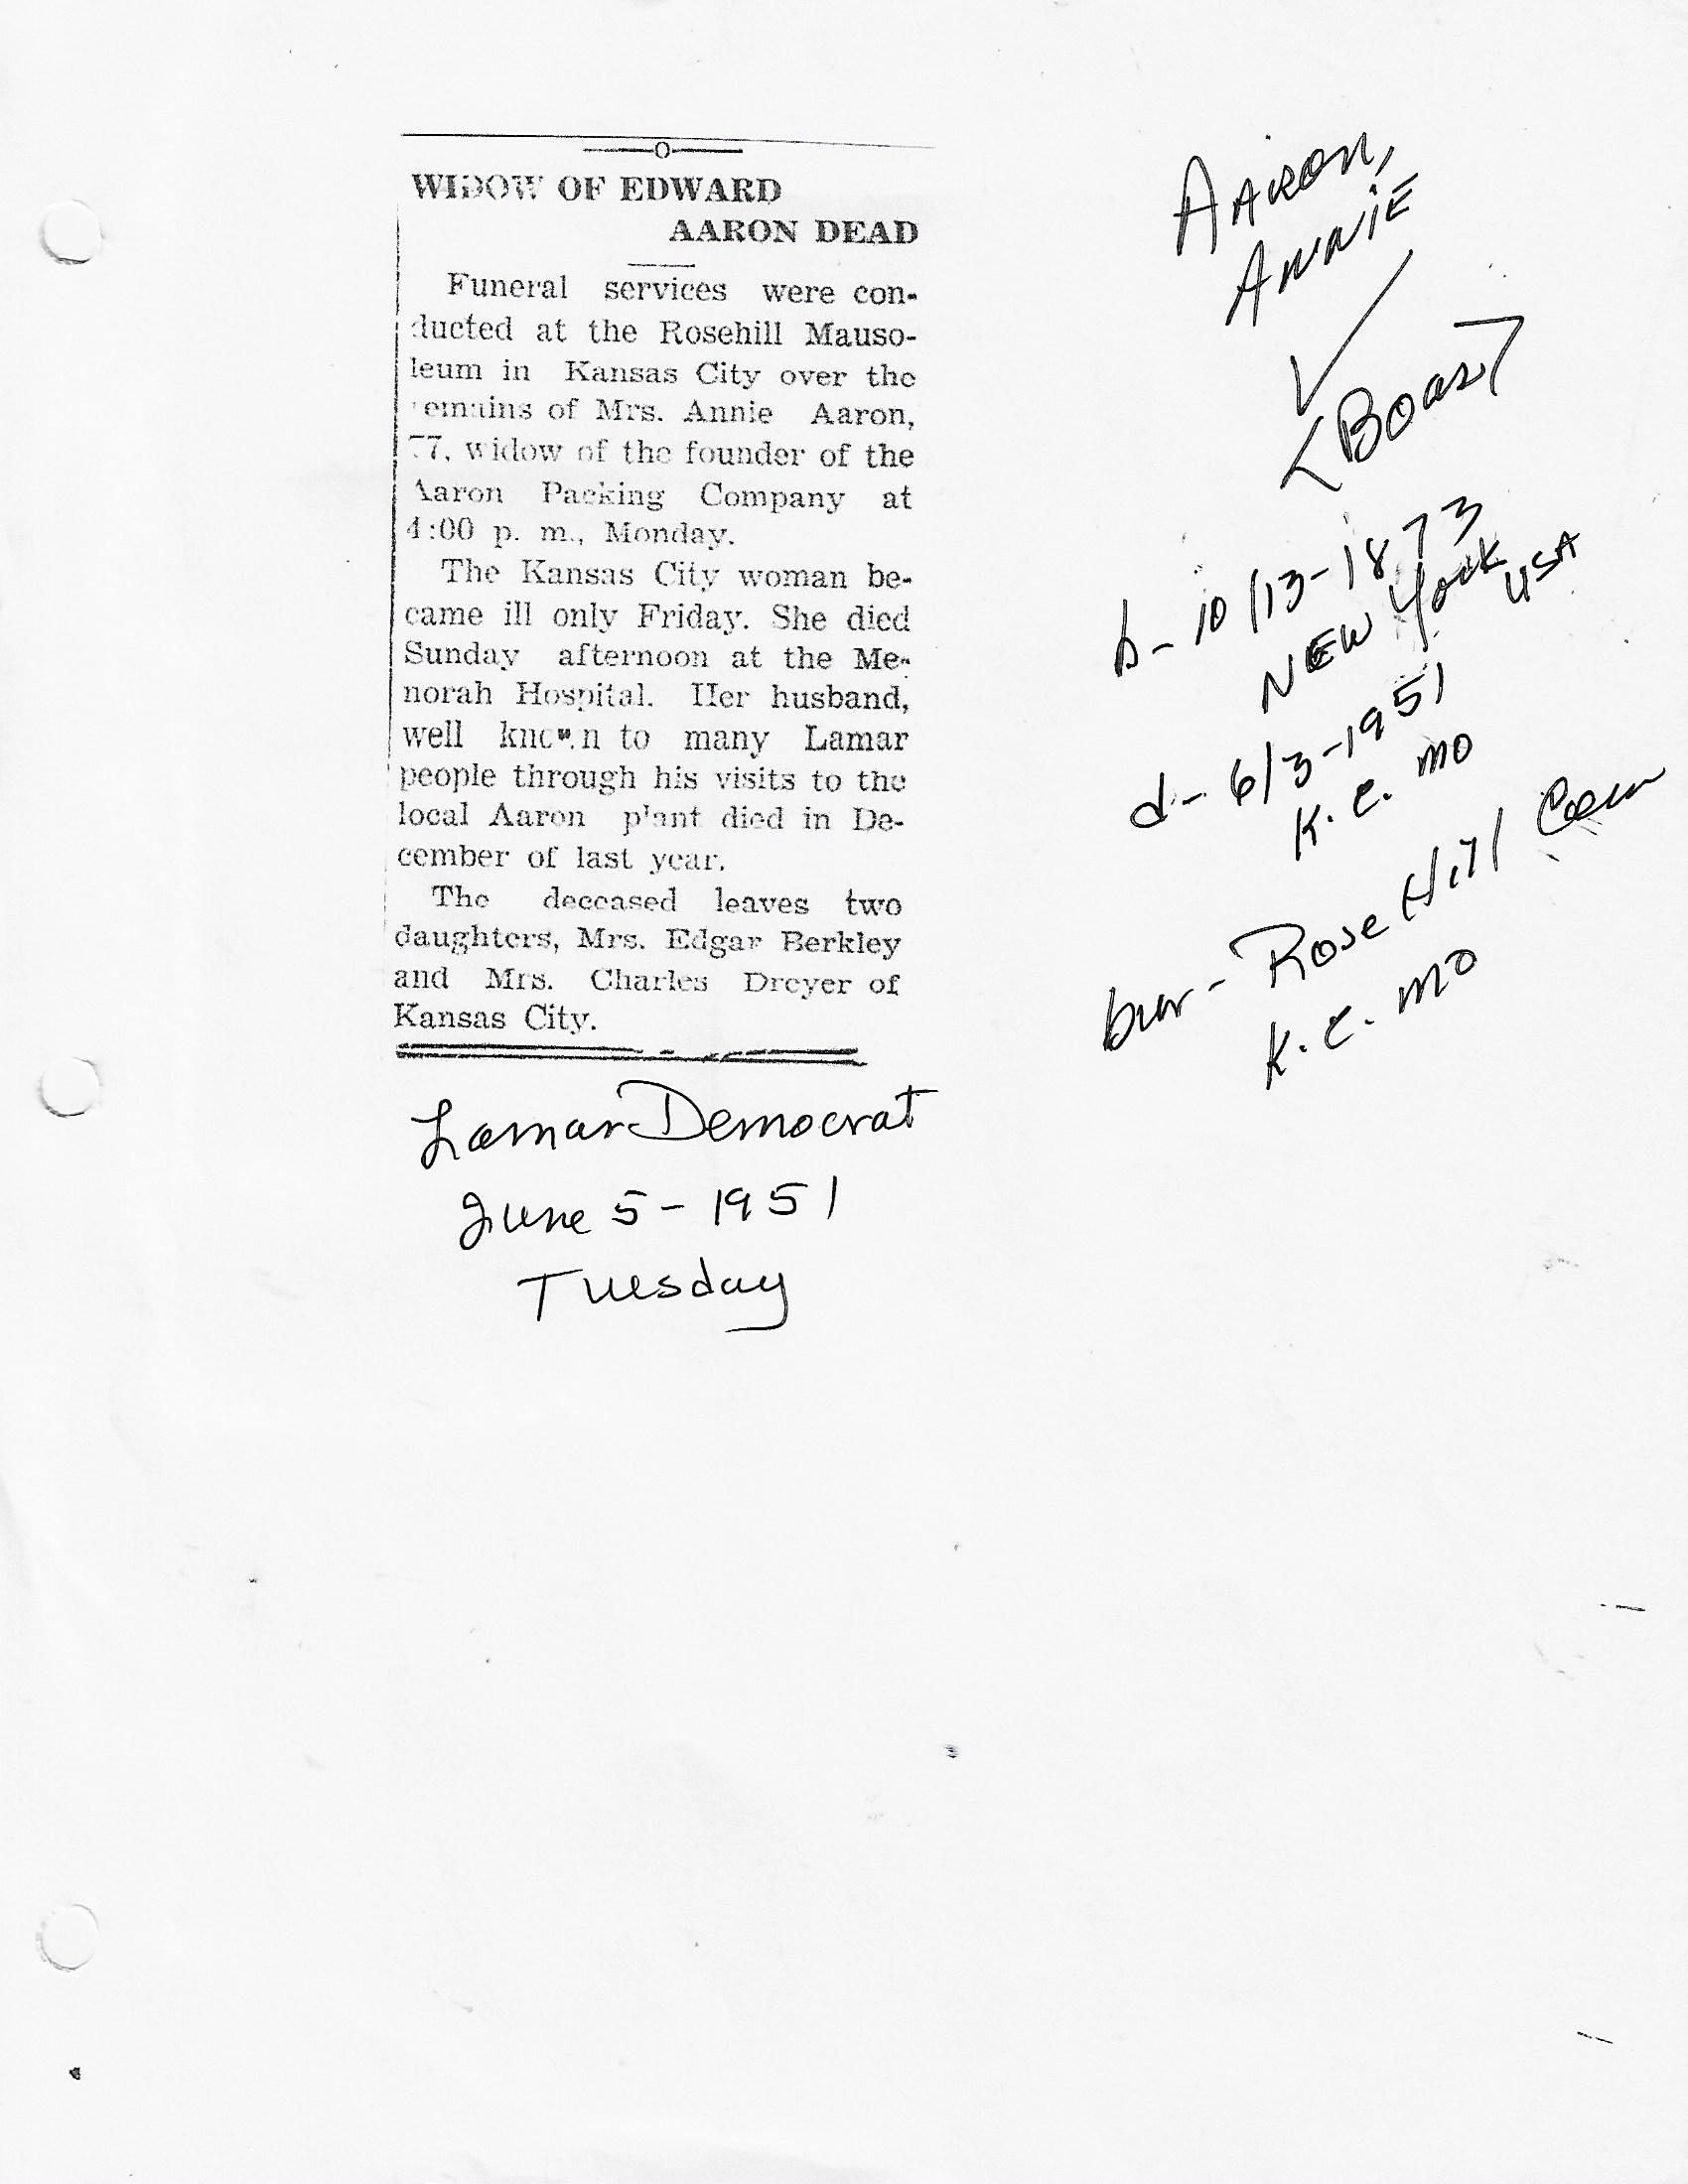 WIDOW OF EDWARD
AARON DEAD
Funeral services were con-
ducted at the Rosehill Mauso-
leum in Kansas City over the
remains of Mrs. Annie Aaron,
77, widow of the founder of the
Aaron Packing Company at
4:00 p. m., Monday.
The Kansas City woman be-
came ill only Friday. She died
Sunday afternoon at the Me-
norah Hospital. Her husband,
well known to many Lamar
people through his visits to the
local Aaron plant died in De-
cember of last year.
The deceased leaves two
daughters, Mrs. Edgar Berkley
and Mrs. Charles Dreyer of
Kansas City.
Lamar Democrat
June 5-1951
Tuesday
AARON,
ANNIE
b-10/13-1873
NEW York
USA
d-6/3-1951
K.C. MO
bur-Rose Hill Cem
K.C. MO